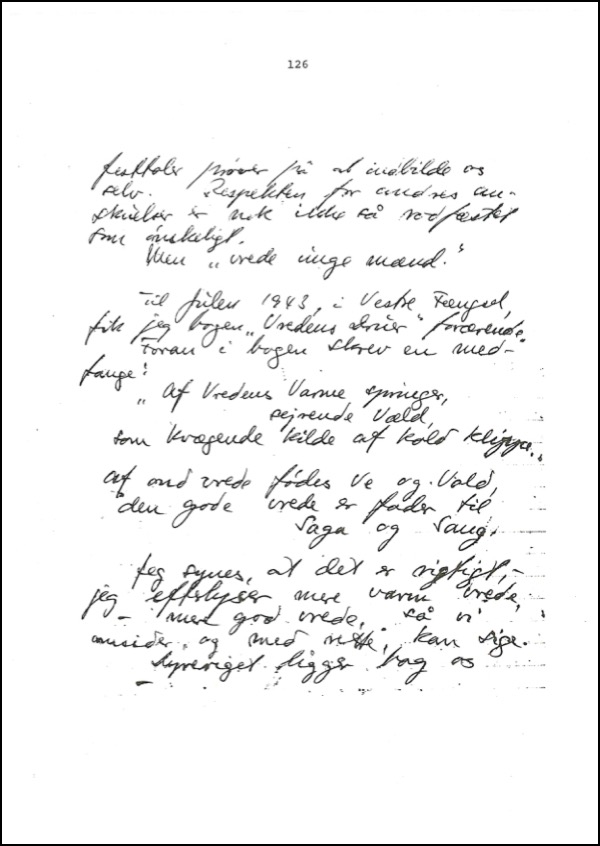 126
festtaler prøver på at indbilde os
selv. Respekten for andres an-
skuelser er nok ikke så rodfæstet
som ønskeligt.
Men „vrede unge mænd."
Til Julen 1943, i Vestre Fængsel,
fik jeg bogen „Vredens Druer" forærende.
Foran i bogen skrev en med-
fange:
„Af Vredens Varme springer,
sejrende Væld,
som kvægende Kilde af kold Klippe.
af ond vrede fødes Ve og Vold,
den gode vrede er fader til
Saga og Sang.
Jeg synes, at det er rigtigt, –
jeg efterlyser mere varm vrede,
– mere god vrede, så vi
omsider, og med rette, kan sige.
Dyreriget ligger bag os
–